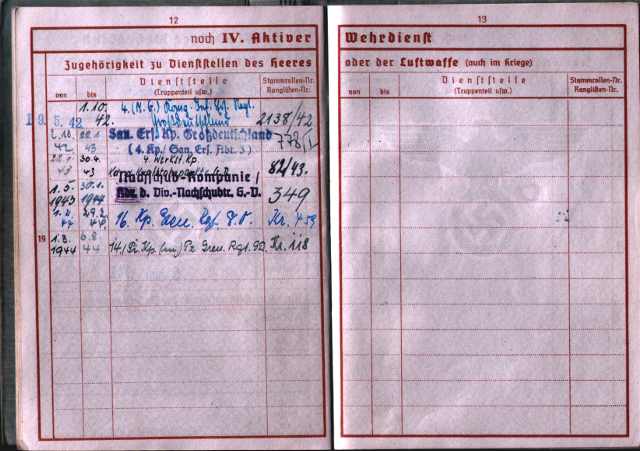 12
noch IV. Aktiver
Zugehörigkeit zu Dienststellen des Heeres
von
bis
Dienststelle
(Truppenteil usw.)
Stammrollen-Nr.
Ranglisten-Nr.
19.5.42
1.10.
42.
4. (M.G.)
Großdeutschland
2138/42
2.10.
42
22.1
43
San. Ers. Kp. Großdeutschland
(4. Kp./San. Ers. Abt. 3)
778/I
22.1
43
30.4.
43
4. Werkst. Kp.
82/43.
1.5.
1943
30.1.
1944
Nachschub-Kompanie/
Kdr. d. Div.-Nachschubtr. G.-D.
349
1.2.
44
29.2.
44
16. Kp. Gren. Rgt. G.D.
Nr. 459
19
1.3.
1944
6.8.
44
14./Pz. Gren. Rgt. 90
Nr. 118
13
Wehrdienst
oder der Luftwaffe (auch im Kriege)
von
bis
Dienststelle
(Truppenteil usw.)
Stammrollen-Nr.
Ranglisten-Nr.